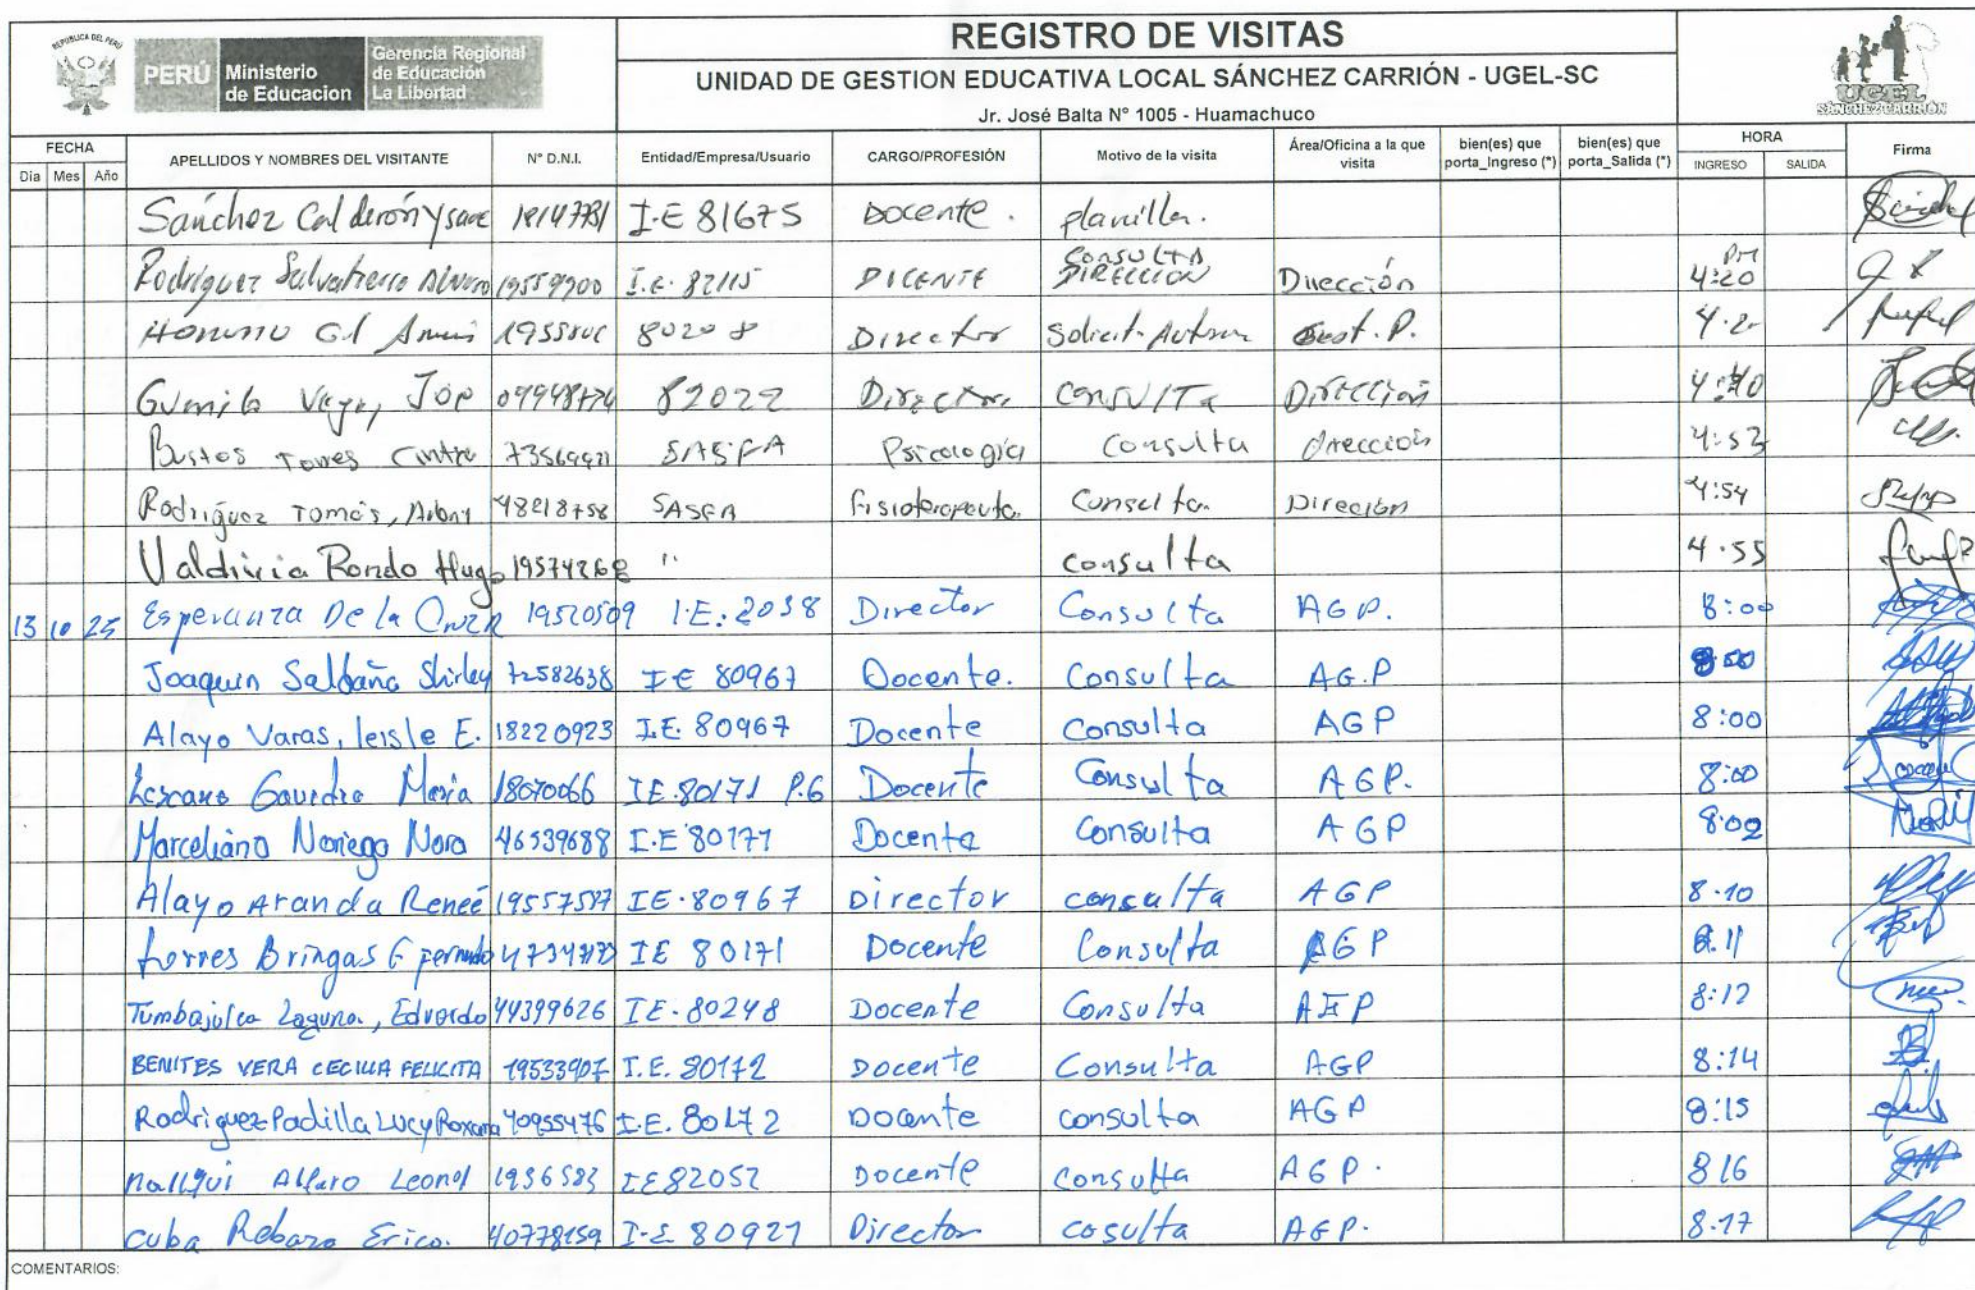 REPUBLICA DEL PERÚ
PERÚ Ministerio de Educacion Gerencia Regional de Educación La Libertad
REGISTRO DE VISITAS
UNIDAD DE GESTION EDUCATIVA LOCAL SÁNCHEZ CARRIÓN - UGEL-SC
Jr. José Balta N° 1005 - Huamachuco
UGEL SÁNCHEZ CARRIÓN
FECHA APELLIDOS Y NOMBRES DEL VISITANTE N° D.N.I. Entidad/Empresa/Usuario CARGO/PROFESIÓN Motivo de la visita Área/Oficina a la que visita bien(es) que porta_Ingreso (*) bien(es) que porta_Salida (*) HORA Firma
Dia Mes Año INGRESO SALIDA
Sánchez Calderón I.E 81675 Docente. planilla.
Rodríguez Salvatierra I.E. 82115 DICENTE CONSULTA DIRECCION Dirección PM 4:20
Gil 80208 Director Solicit. P.
82022 CONSULTA Dirección 4:40
Bustos Torres SASFA Psicología Consulta dirección 4:53
Rodríguez Tomás, 48218758 SASFA Fisioterapeuta. Consulta Direción 4:54
Valdivia Rondo Hugo 19574268 " consulta 4.55
13 10 25 Esperanza De la 19520509 I.E: 2038 Director Consulta AGP. 8:00
Joaquin Saldaña Shirley 72582638 I E 80967 Docente. Consulta AG.P 8:00
Alayo Varas, leisle E. 18220923 I.E. 80967 Docente Consulta AGP 8:00
Lescano Maria 18070066 IE.80171 P.G Docente Consulta AGP. 8:00
Marceliano Noriega Nora 46539688 I.E 80171 Docente Consulta AGP 8:02
Alayo Aranda Reneé IE.80967 Director consulta AGP 8.10
Torres Bringas IE 80171 Docente Consulta AGP 8.11
Laguna, Eduardo 44399626 IE.80248 Docente Consulta 8:12
BENITES VERA CECILIA FELICITA 19533907 I.E. 80172 Docente Consulta AGP 8:14
Rodriguez Padilla Lucy Roxana 40955476 I.E. 80172 Docente consulta AGP 8:15
Alfaro IE82052 Docente consulta AGP. 816
Cuba 40778159 I-E 80921 Director cosulta AGP. 8.17
COMENTARIOS: